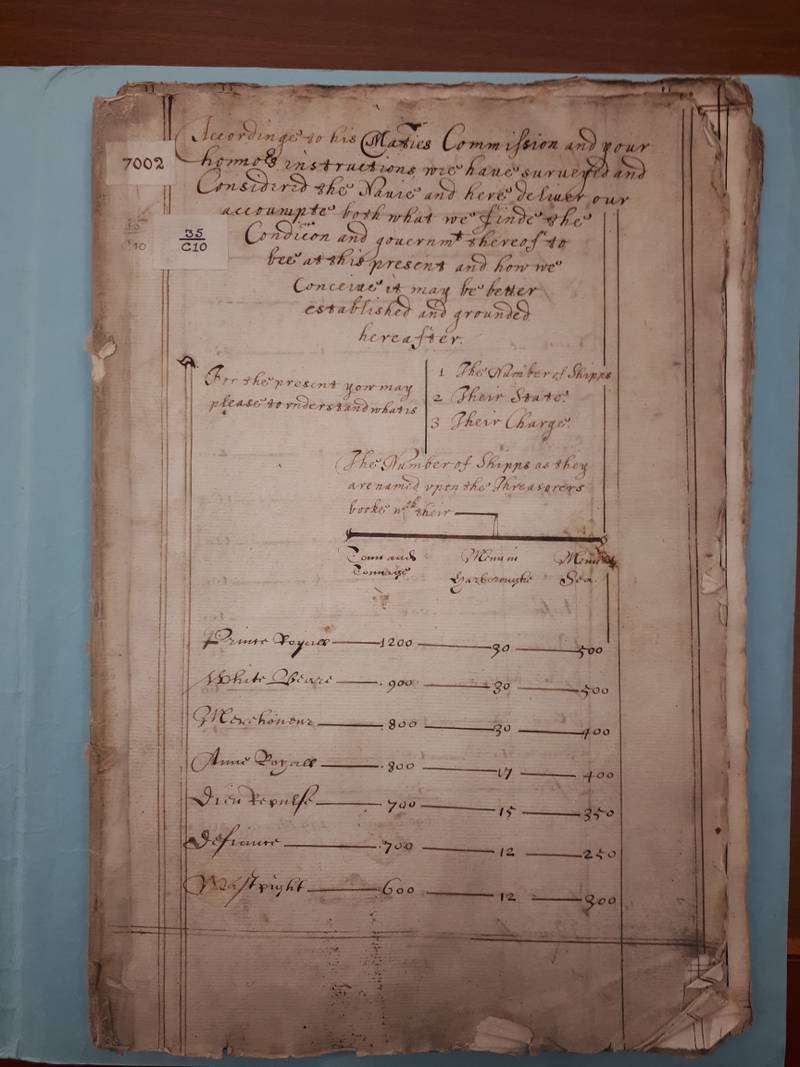 Accordinge to his Maties Commission and your
7002
honnors instructions wee have surveyed and
Considered the Navie and here deliver our
accoumpte both what we finde the
35
C10
Condicon and governmt thereof to
bee at this present and how we
Conceive it may be better
established and grounded
hereafter.
For the present yow may
please to vnderstand what is
1 The Number of Shipps
2 Their State
3 Their Charge
The Number of Shipps as they
are named vpon the Threasorers
booke wth their
Tonn and Tonnage
Menn in Harboroughe
Menn at Sea
Prince Royall 1200 30 500
White Beare 900 30 500
Merehonour 800 30 400
Anne Royall 800 17 400
Dieu Repulse 700 15 350
Defiance 700 12 250
Wastspight 600 12 300